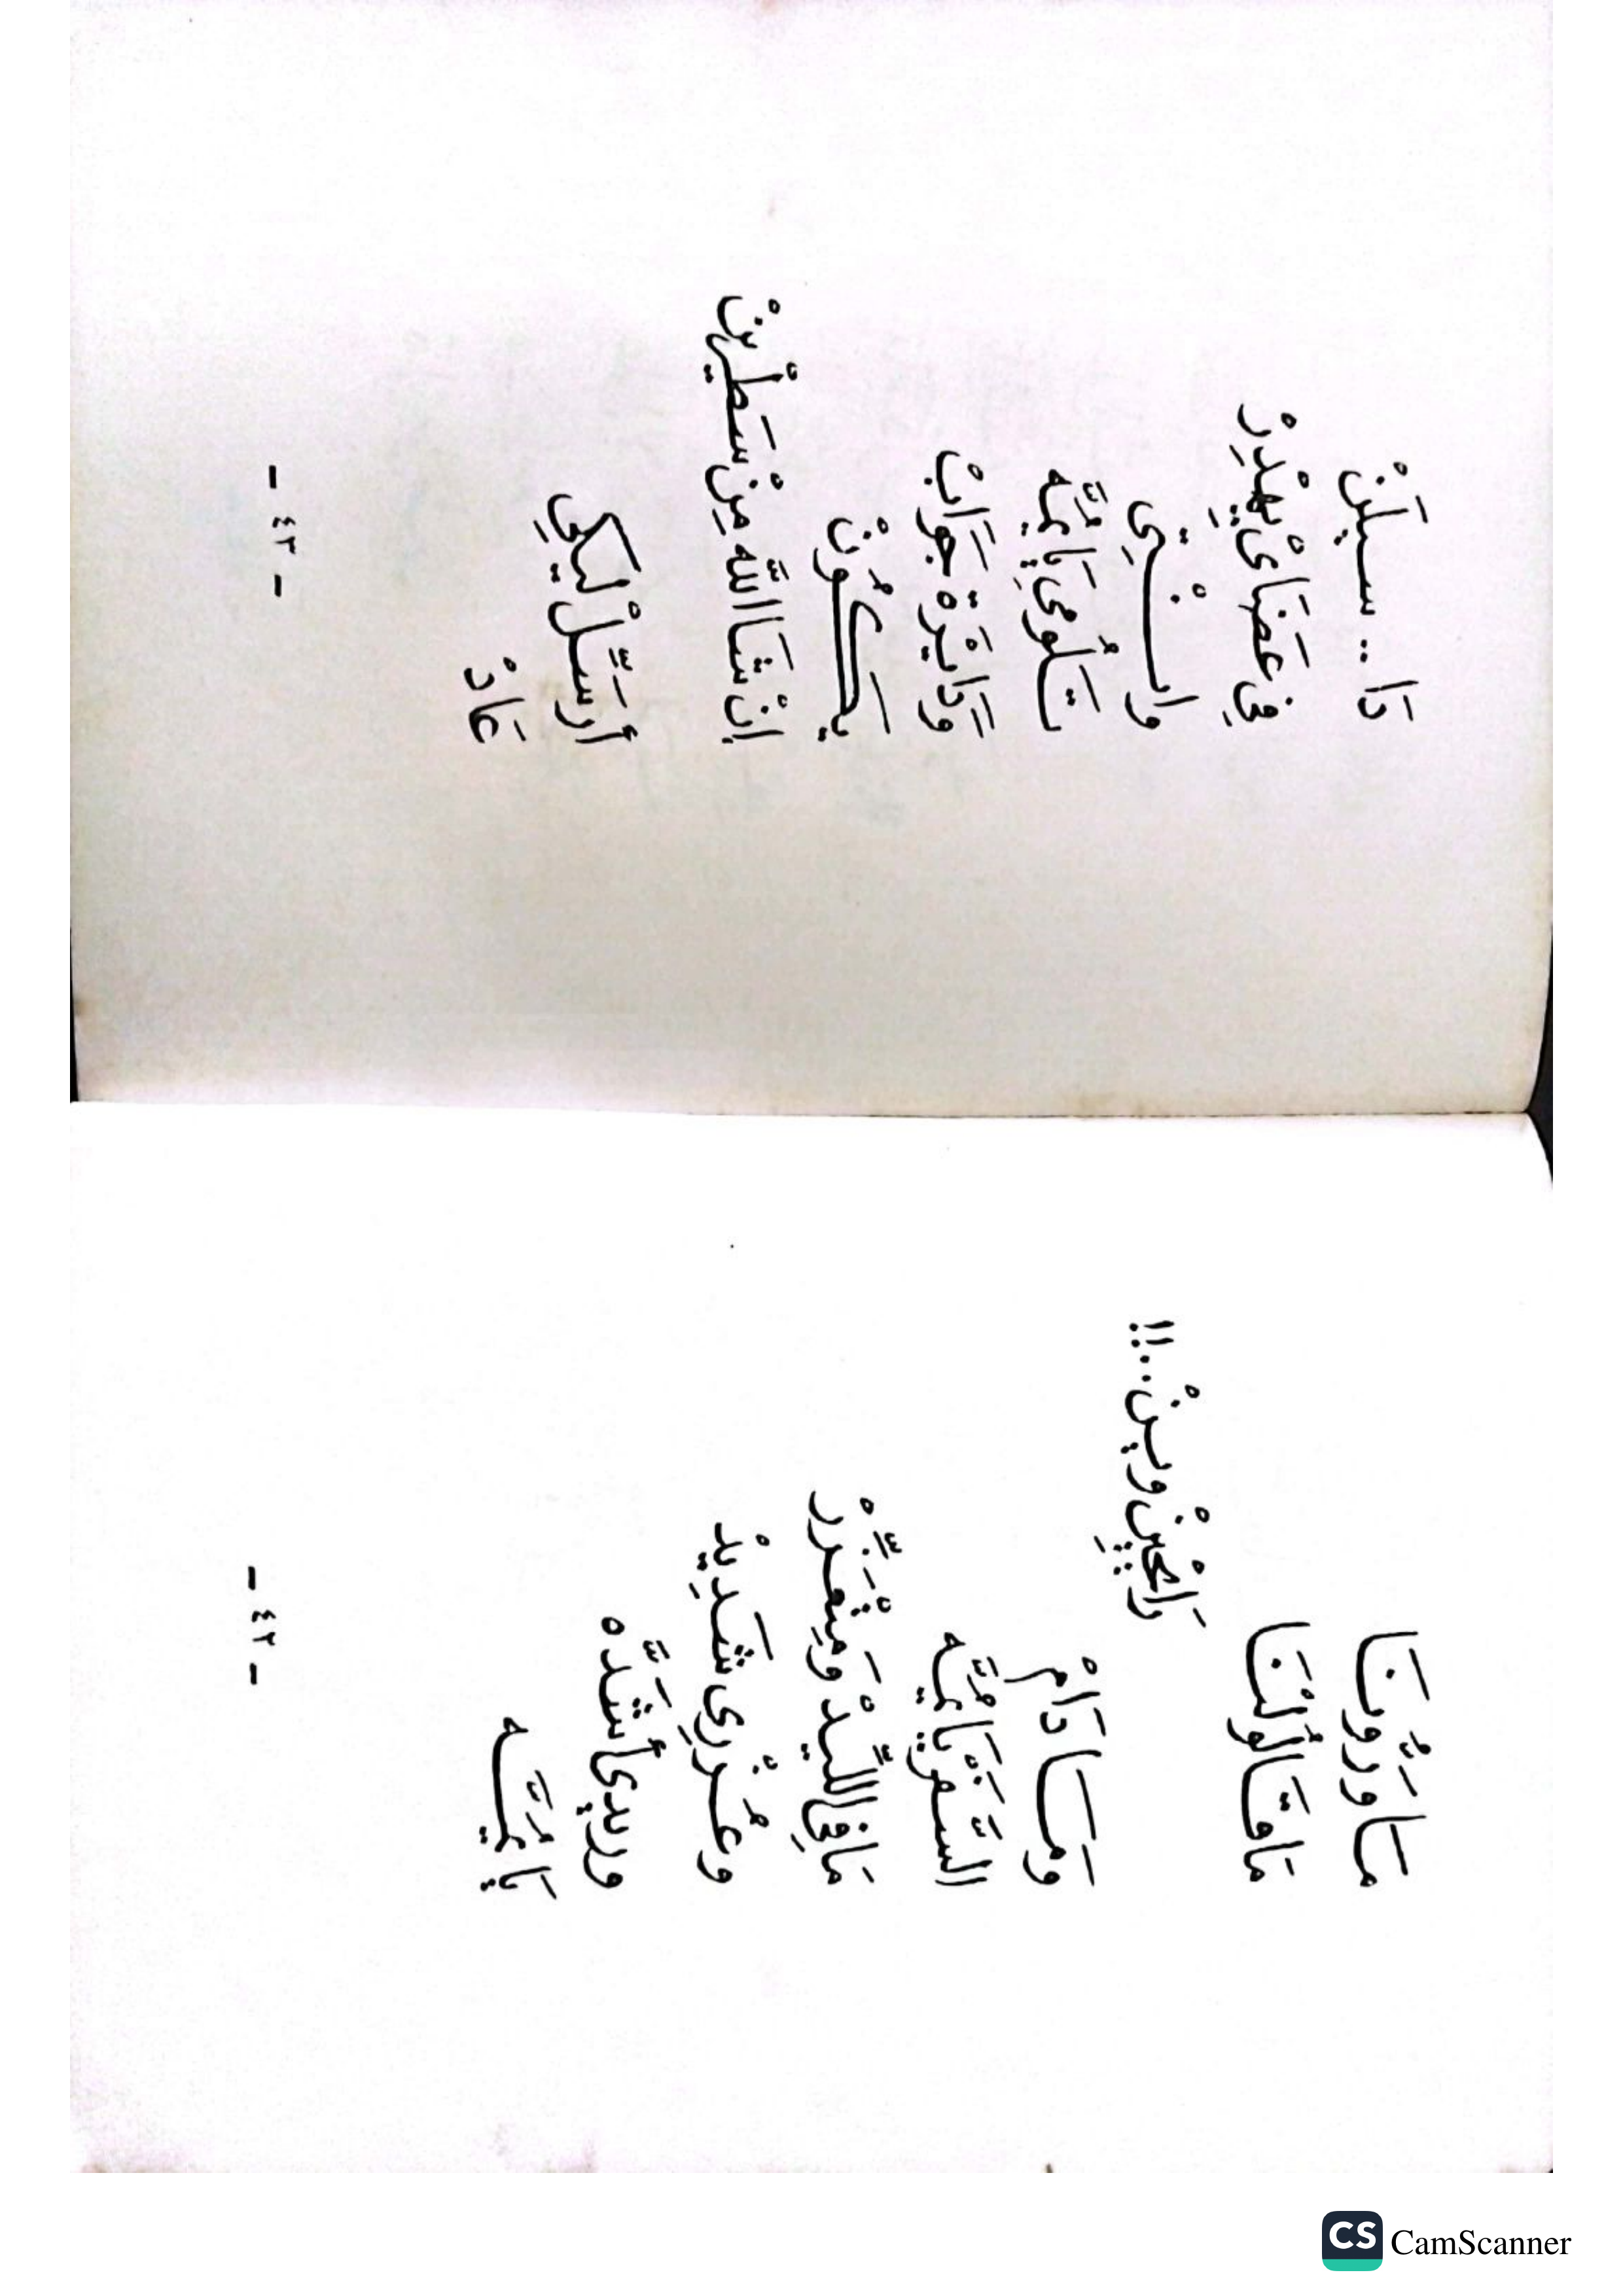 مَا وَرُّونَا
مَا قَالُولْنَا
رَايْحِينْ وينْ..!!
وِمَا دَامْ
السَّفَرْ يَا يُمَّه
مَافِي اللِّيدْ وَمِتْعَذِّرْ
وعُذْرِي شَدِيدْ
وريدِي أشَدَّه
يَا يُمَّه
- ٤٢ -
دَا.. سيلَنْ
فِي عَضَايْ يِهْدِرْ
وإنْتِي
تَلُومِي يَا يُمَّه
وَدَايْرَهْ جَوَابْ
يَكُونْ
إنْ شَا اللّه مِنْ سَطْرِينْ
أرَسِّلْ لَيكِي
عَادْ
- ٤٣ -
CS CamScanner